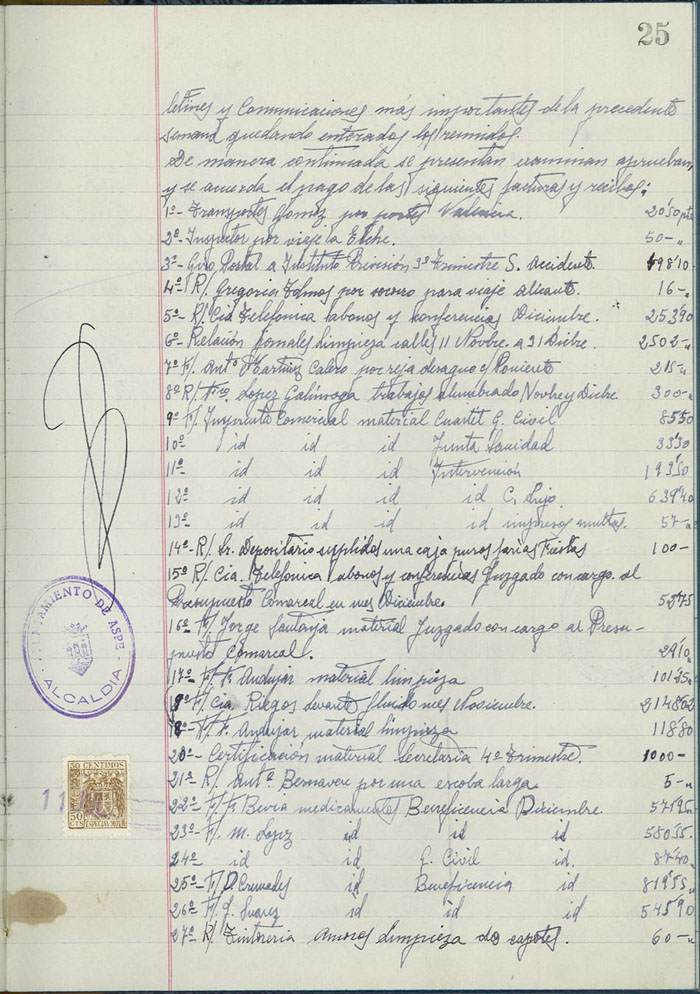 25
letines y Comunicaciones más importantes de la precedente
semana quedando enterados los reunidos.
De manera continuada se presentan examinan aprueban,
y se acuerda el pago de las siguientes facturas y recibos:
1º- Transportes Gomez por portes Valencia. 20'50 pts
2º- Inspector por viaje a Elche. 50-"
3º- Giro Postal a Instituto Previsión 3º Trimestre S. Accidente. 98'10
4º- R/. Gregorio por socorro para viaje alicante. 16-"
5º- R/. Cia Telefonica abonos y conferencias Diciembre. 253'90
6º- Relación jornales limpieza calles 11 Novbre. a 31 Dicbre. 2502-"
7º F/. Antº Martinez Calero por reja desague c/ Poniente 215-"
8º R/ Fco. Lopez Galinsoga trabajos alumbrado Novbre y Dicbre 300-"
9º F/ Imprenta Comercial material Cuartel G. Civil 85'50
10º id id id Junta Sanidad 33'50
11º id id id Intervención 193'50
12º id id id id C. Trigo 639'40
13º- id id id id impresos multas. 57-"
14º- R/ Sr. Depositario suplidos una caja puros farias Fiestas 100-
15º R/. Cia. Telefonica abonos y conferencias Juzgado con cargo al
Presupuesto Comarcal en mes Diciembre. 53'75
16º F/ Jorge Santonja material Juzgado con cargo al Presu-
puesto Comarcal. 29'10
17º- F/. F. Andujar material limpieza 101'25
18º F/. Cia. Riegos Levante fluido mes Noviembre. 2148'62
F/. F. Andujar material limpieza 118'80
20º- Certificación material Secretaria 4º Trimestre. 1000-
21º R/. Antº Bernaveu por una escoba larga. 5-"
22º F/. Beviá medicamentos Beneficencia Diciembre. 571'95
23º F/. M. Lopez id id id 580'55
24º id id G. Civil id. 87'40
25º- F/. D. Cremades id Beneficencia id 819'55
26º F/. J. Suarez id id id 545'90
27º R/ Tintoreria Amoros limpieza de capotes. 60-"
AYUNTAMIENTO DE ASPE
ALCALDIA
50 CENTIMOS
50 CTS ESPECIAL MOVIL